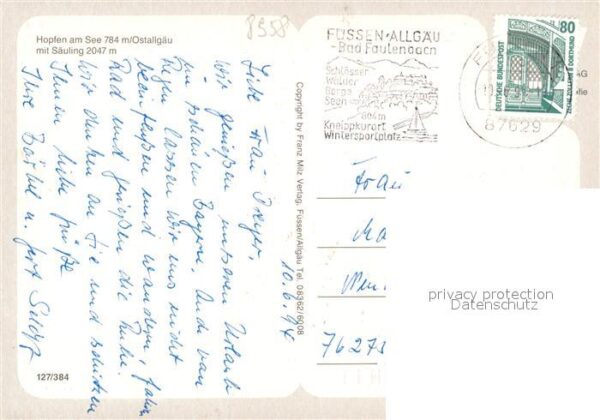 8558
Hopfen am See 784 m/Ostallgäu
mit Säuling 2047 m
10.6.94
Liebe Frau
wir genießen unseren Urlaub
im schönen Bayern. Auch vom
Regen lassen wir uns nicht
beeinflussen und wandern, fahren
Rad und genießen die Ruhe.
Wir denken an Sie und schicken
Ihnen liebe Grüße
Ihre Bärbel u. Gert
127/384
Copyright by Franz Milz Verlag, Füssen/Allgäu Tel. 08362/6008
FÜSSEN·ALLGÄU
-Bad Faulenbach
Schlösser
Wälder
Berge
Seen
804m
Kneippkurort
Wintersportplatz
87629
80
DEUTSCHE BUNDESPOST
ZECHE ZOLLERN II DORTMUND
AG
ofie
Frau
76275
privacy protection
Datenschutz